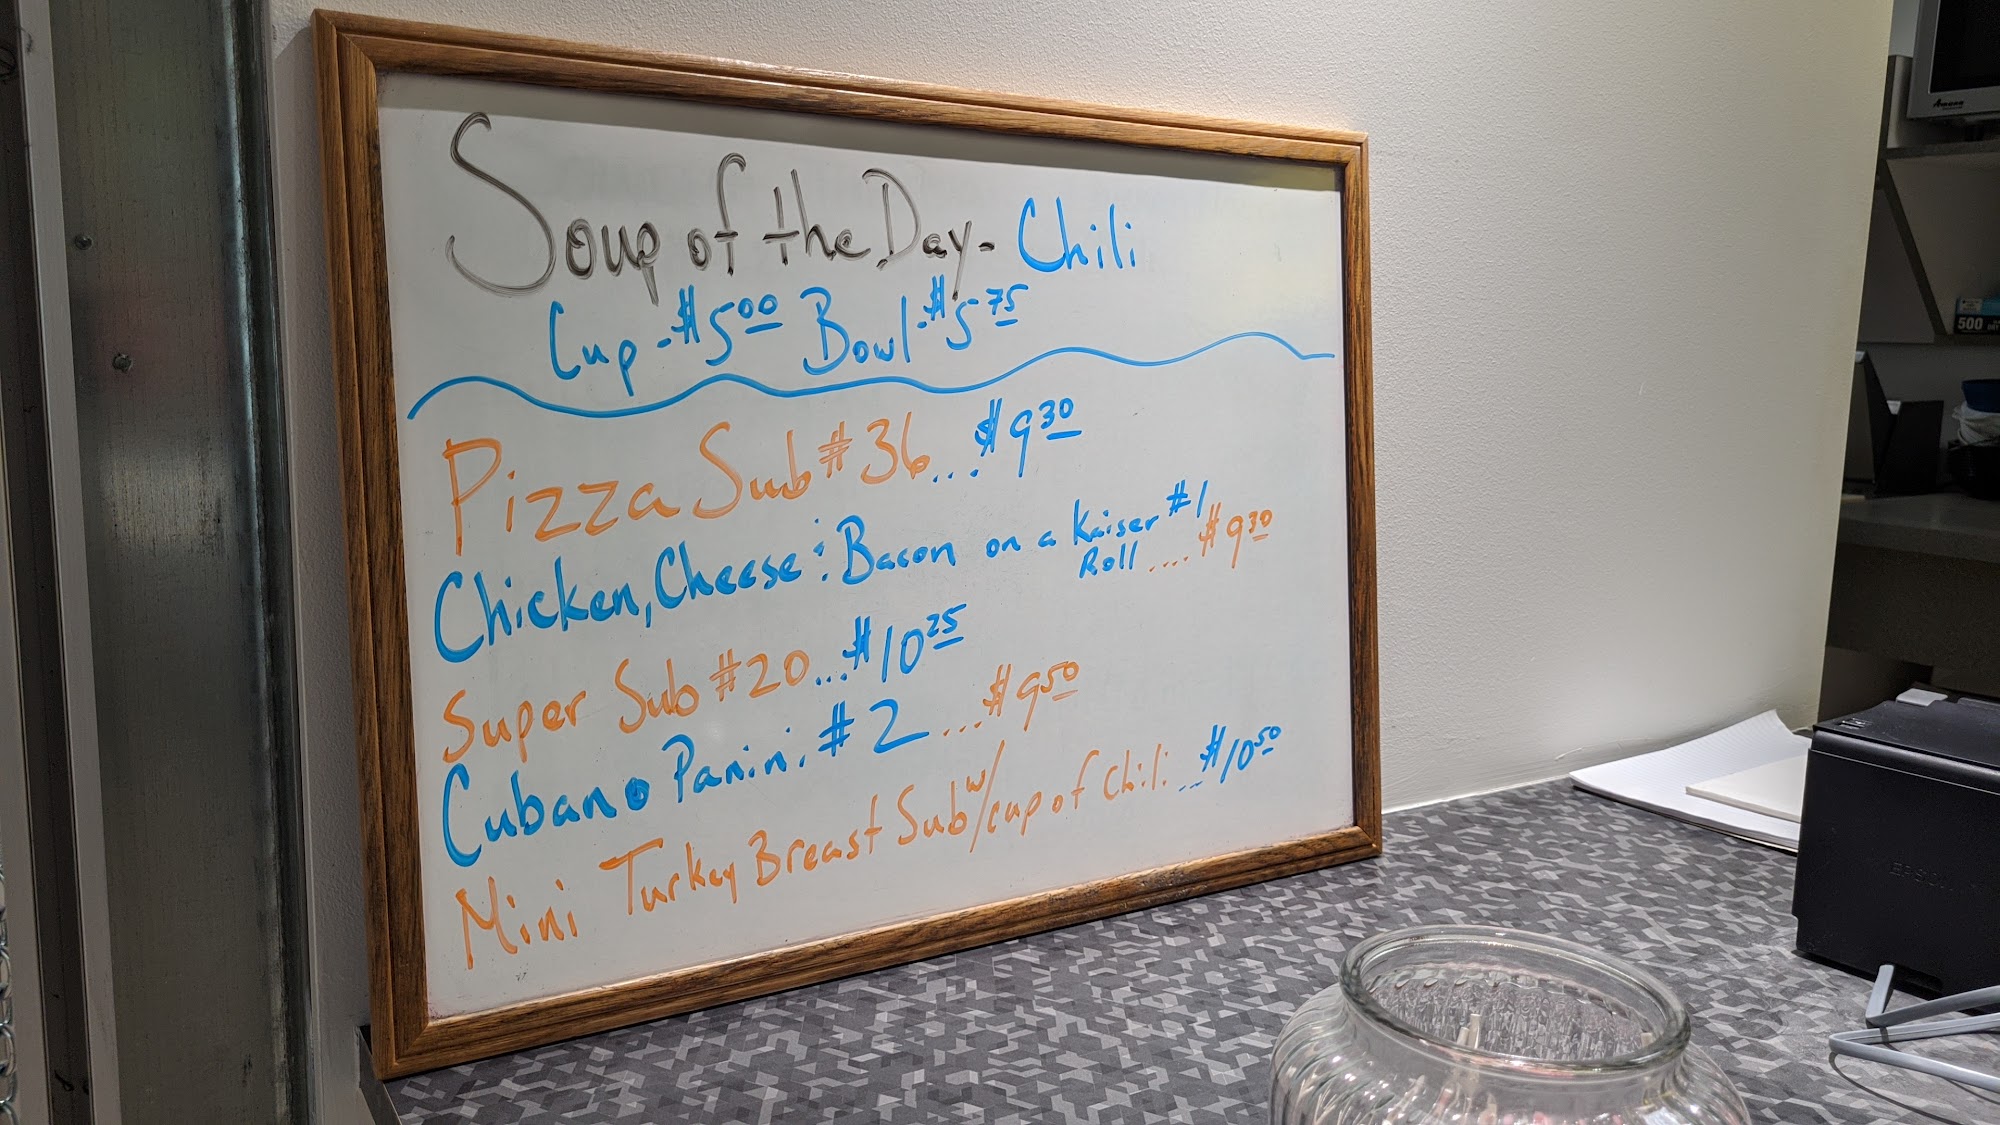 Soup of the Day - Chili
Cup - $5.00 Bowl - $5.75
Pizza Sub #36 ... $9.30
Chicken, Cheese & Bacon on a Kaiser #1
Roll .... $9.30
Super Sub #20 ... $10.25
Cubano Panini #2 .... $9.50
Mini Turkey Breast Sub w/ cup of Chili ... $10.50
Amana
500
EPSON